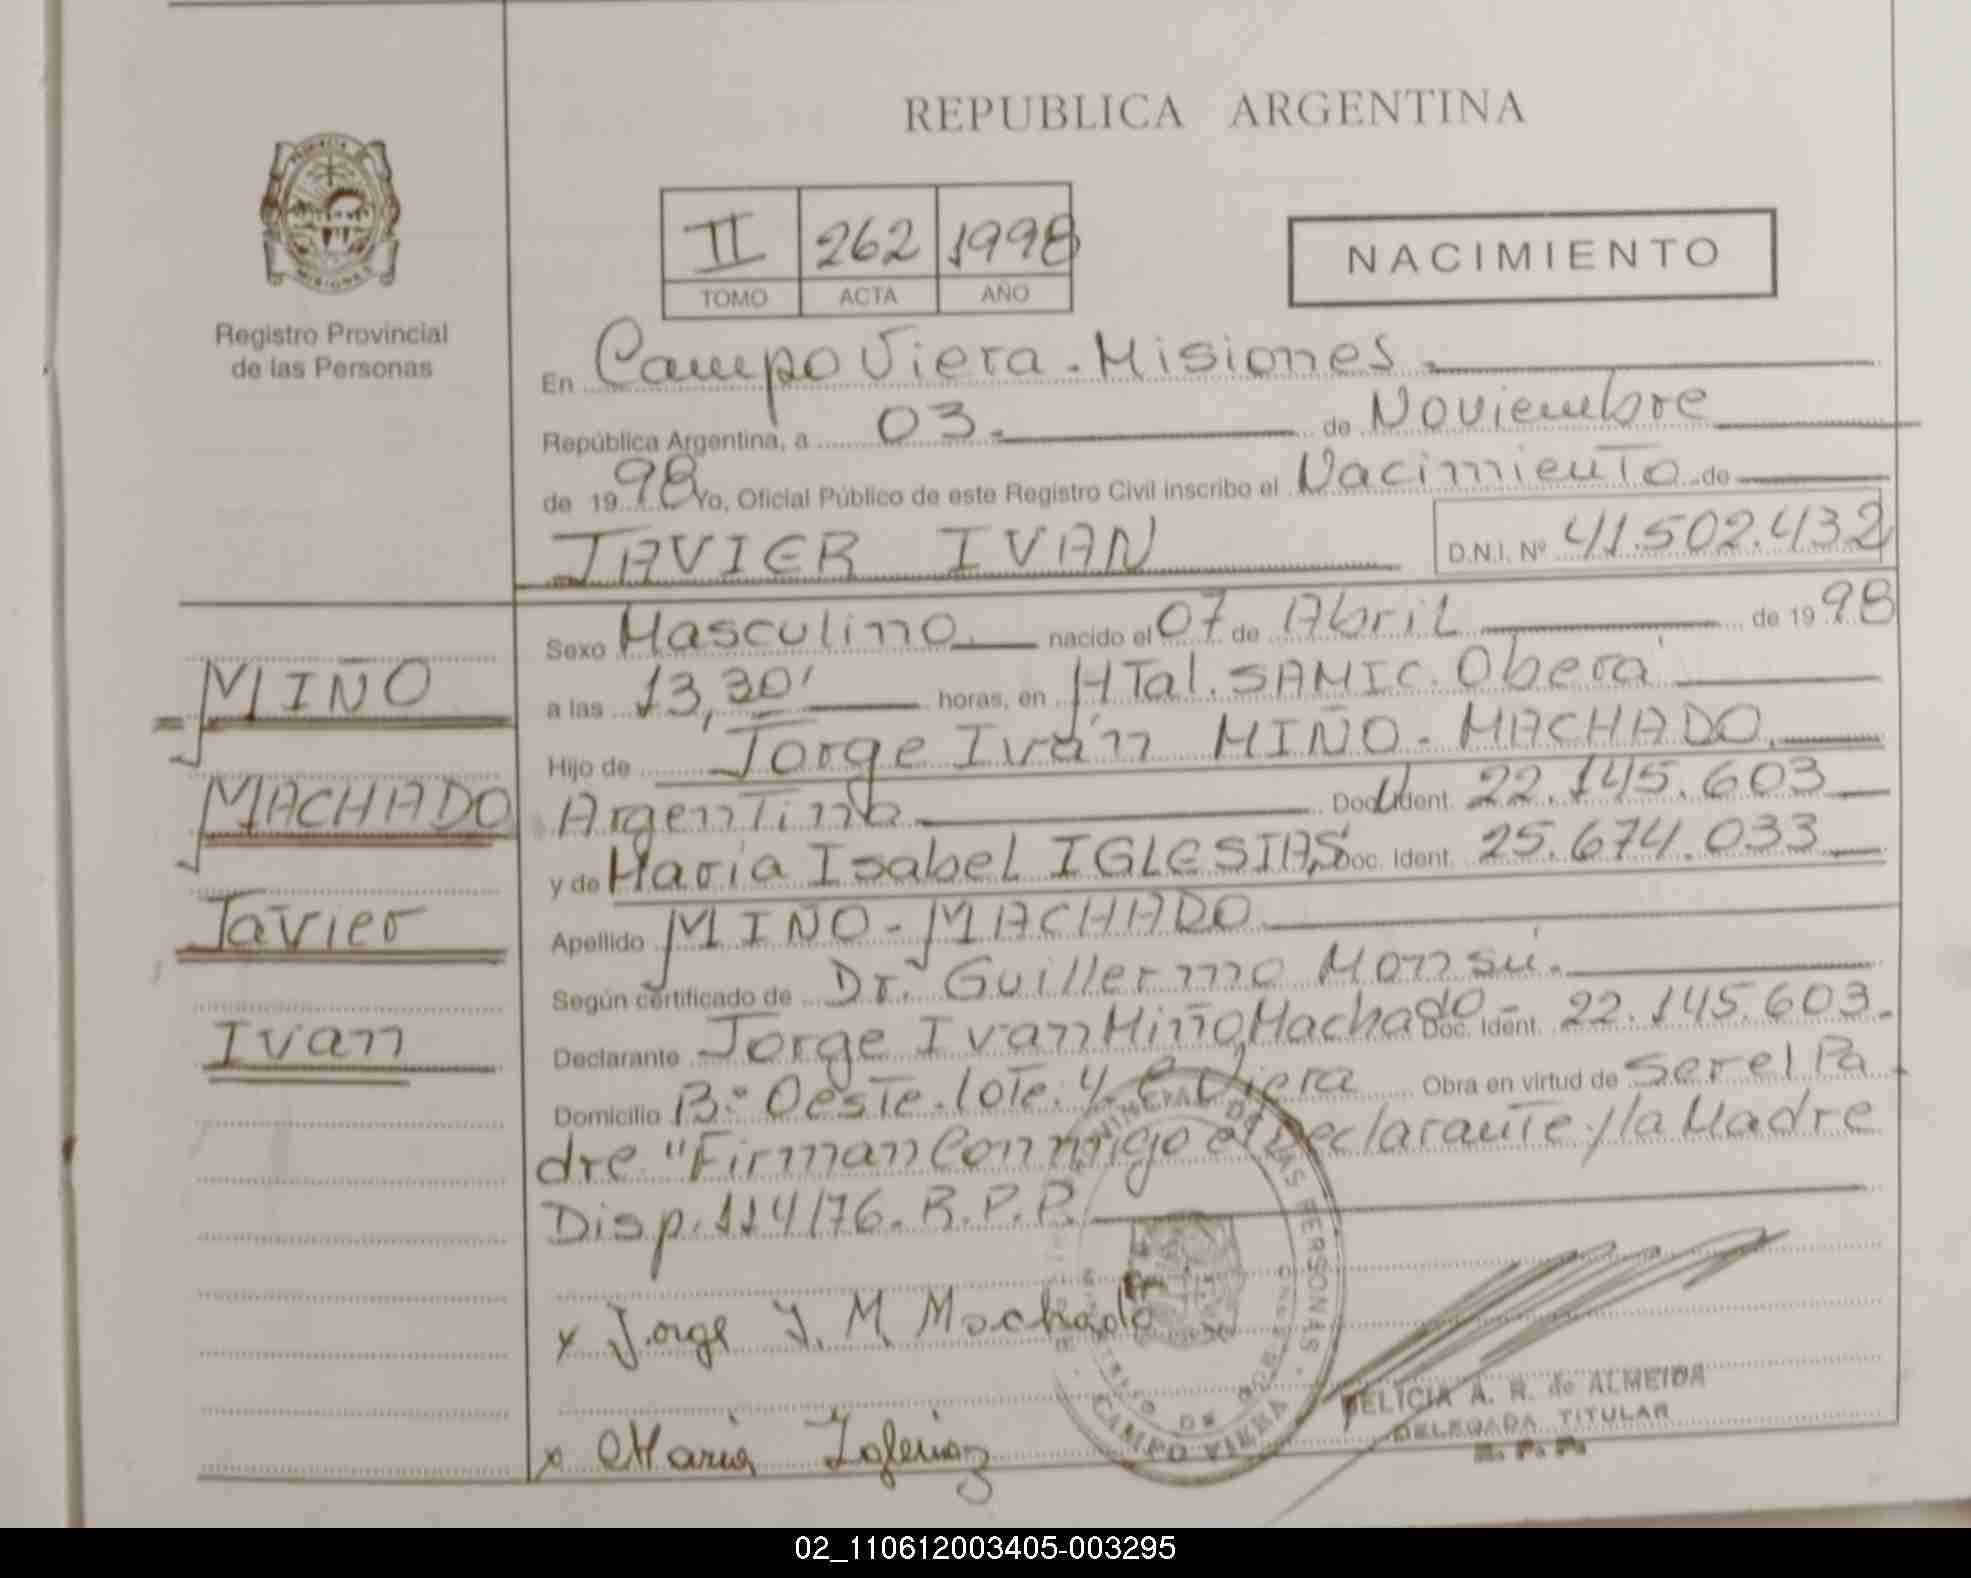 REPUBLICA ARGENTINA
Registro Provincial
de las Personas
II 262 1998
TOMO ACTA AÑO
NACIMIENTO
En Campo Viera - Misiones
República Argentina, a 03. de Noviembre
de 1998 Yo, Oficial Público de este Registro Civil inscribo el Nacimiento de
JAVIER IVAN D.N.I. Nº 41.502.432
Sexo Masculino. nacido el 07 de Abril de 1998
a las 13,30' horas, en HTal. SAMIC. Oberá
Hijo de Jorge Iván MIÑO - MACHADO.
Argentino Doc. Ident. 22.145.603
y de Maria Isabel IGLESIAS Doc. Ident. 25.674.033
Apellido MIÑO - MACHADO
Según certificado de Dr. Guillermo Monsú.
Declarante Jorge Ivan Miño Machado - Doc. Ident. 22.145.603.
Domicilio Bº Oeste. lote. 4. C. Viera Obra en virtud de ser el Pa
dre "Firman Conmigo el Declarante y la Madre
Disp. 114/76. R.P.P.
MIÑO
MACHADO
Javier
Ivan
x Jorge I. M. Machado
x Maria Iglesias
PROVINCIA DE
MISIONES
PROVINCIAL DE LAS PERSONAS
MINISTERIO DE GOBIERNO
CAMPO VIERA
FELICIA A. R. de ALMEIDA
DELEGADA TITULAR
R. P. P.
02_110612003405-003295